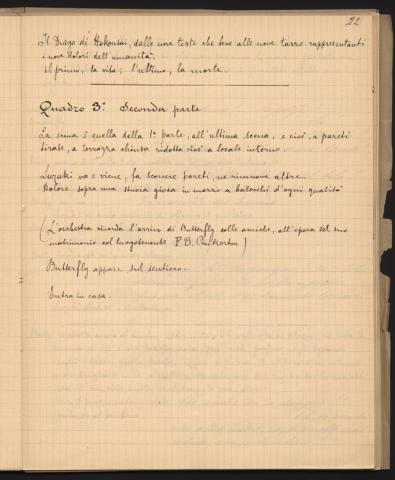 22
Il Drago di Hokousai, dalle nove teste che beve alle nove tazze rappresentanti
i nove dolori dell'umanità:
il primo, la vita; l'ultimo, la morte.
Quadro 3° Seconda parte
La scena è quella della 1ª parte, all'ultima scena, e cioè, a pareti
tirate, a terrazza chiusa ridotta cioè a locale interno.
Suzuki va e viene, fa scorrere pareti, ne rimuove altre.
Dolore sopra una stuoia gioca in mezzo a balocchi d'ogni qualità
(L'orchestra ricorda l'arrivo di Butterfly colle amiche, all'epoca del suo
matrimonio col luogotenente F. B. Pinkerton)
Butterfly appare sul sentiero.
Entra in casa.